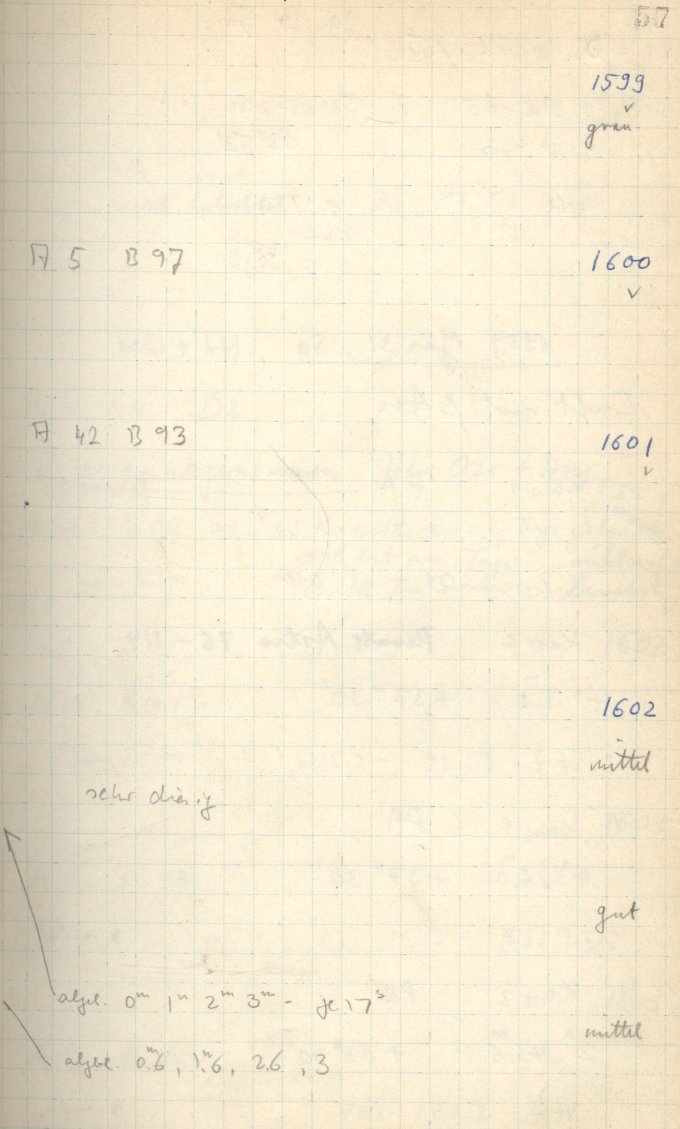 57
1599
grau
A 5 B 97
1600
A 42 B 93
1601
1602
mittel
sehr diesig
gut
0ᵐ 1ᵐ 2ᵐ 3ᵐ - je 17ˢ
mittel
0ᵐ.6, 1ᵐ.6, 2.6, 3